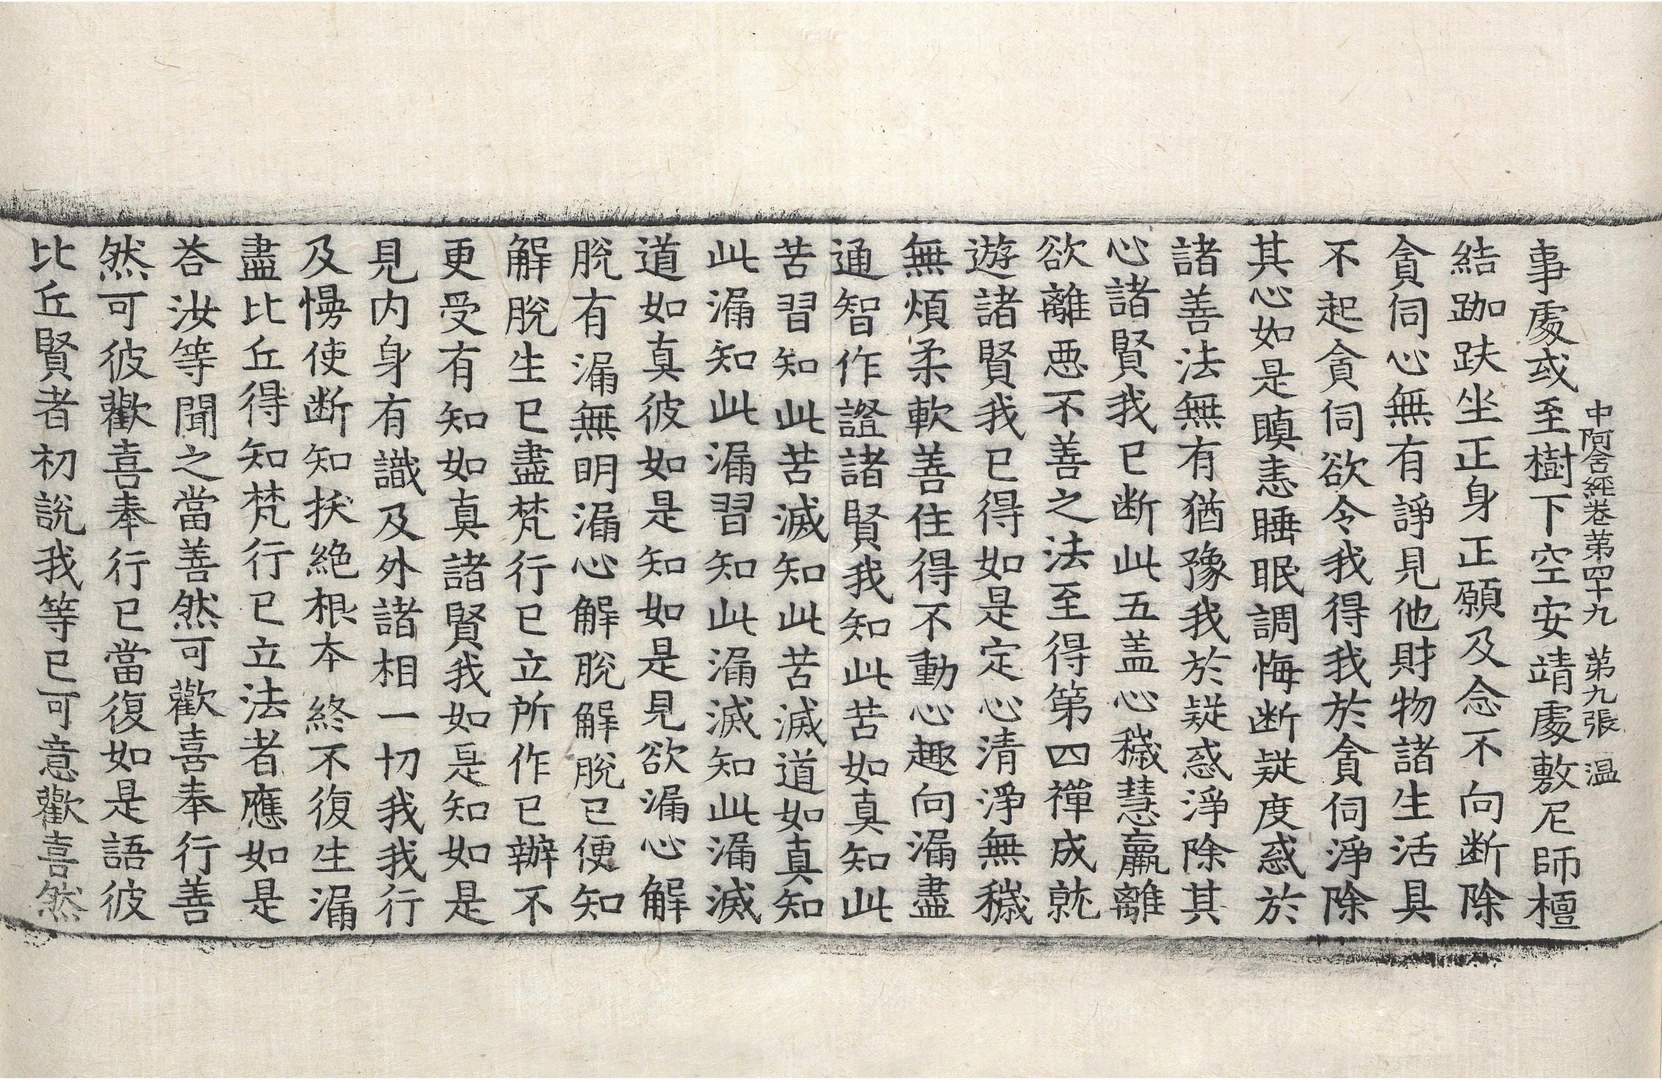 中阿含經卷第四十九 第九張 温
事處或至樹下空安靖處敷尼師檀
結跏趺坐正身正願及念不向斷除
貪伺心無有諍見他財物諸生活具
不起貪伺欲令我得我於貪伺淨除
其心如是瞋恚睡眠調悔断疑度惑於
諸善法無有猶豫我於疑惑淨除其
心諸賢我已断此五盖心穢慧羸離
欲離惡不善之法至得第四禪成就
遊諸賢我已得如是定心清淨無穢
無煩柔軟善住得不動心趣向漏盡
通智作證諸賢我知此苦如真知此
苦習知此苦滅知此苦滅道如真知
此漏知此漏習知此漏滅知此漏滅
道如真彼如是知如是見欲漏心解
脫有漏無明漏心解脫解脫已便知
解脫生已盡梵行已立所作已辦不
更受有知如真諸賢我如是知如是
見内身有識及外諸相一切我我行
及慢使断知拔絶根本終不復生漏
盡比丘得知梵行已立法者應如是
荅汝等聞之當善然可歡喜奉行善
然可彼歡喜奉行已當復如是語彼
比丘賢者初說我等已可意歡喜然